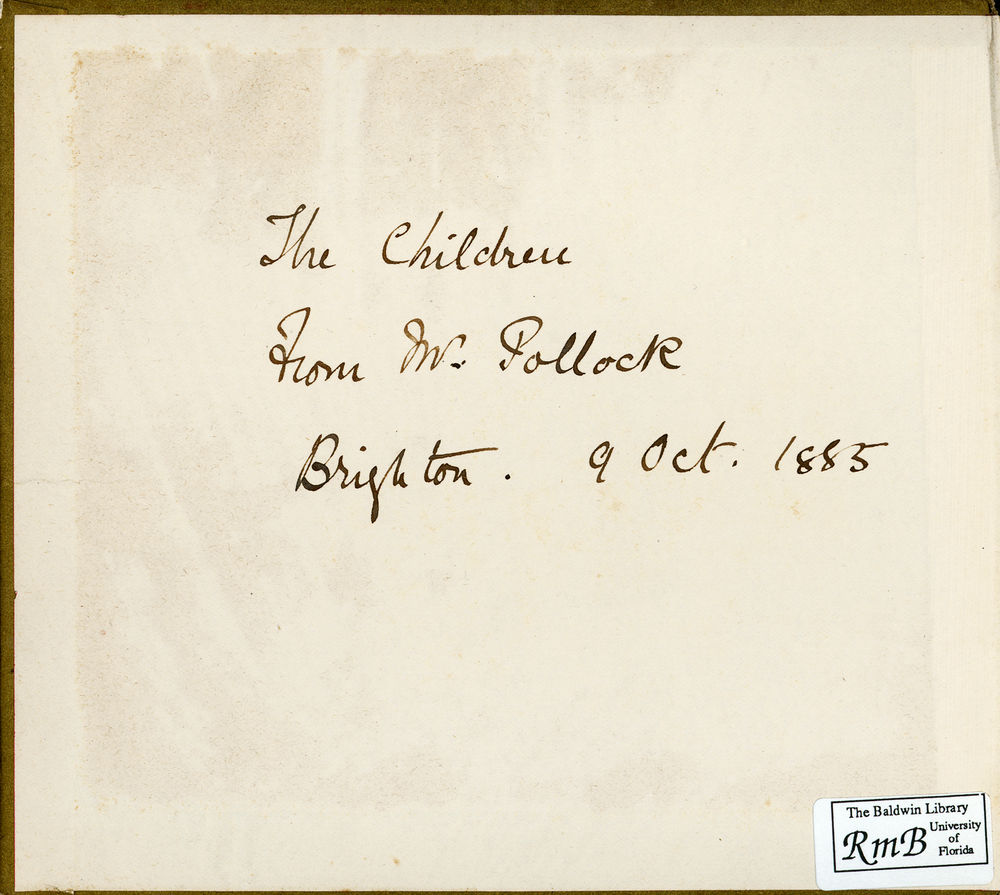 The Children
From Mr. Pollock
Brighton. 9 Oct. 1885
The Baldwin Library
RmB University
of
Florida